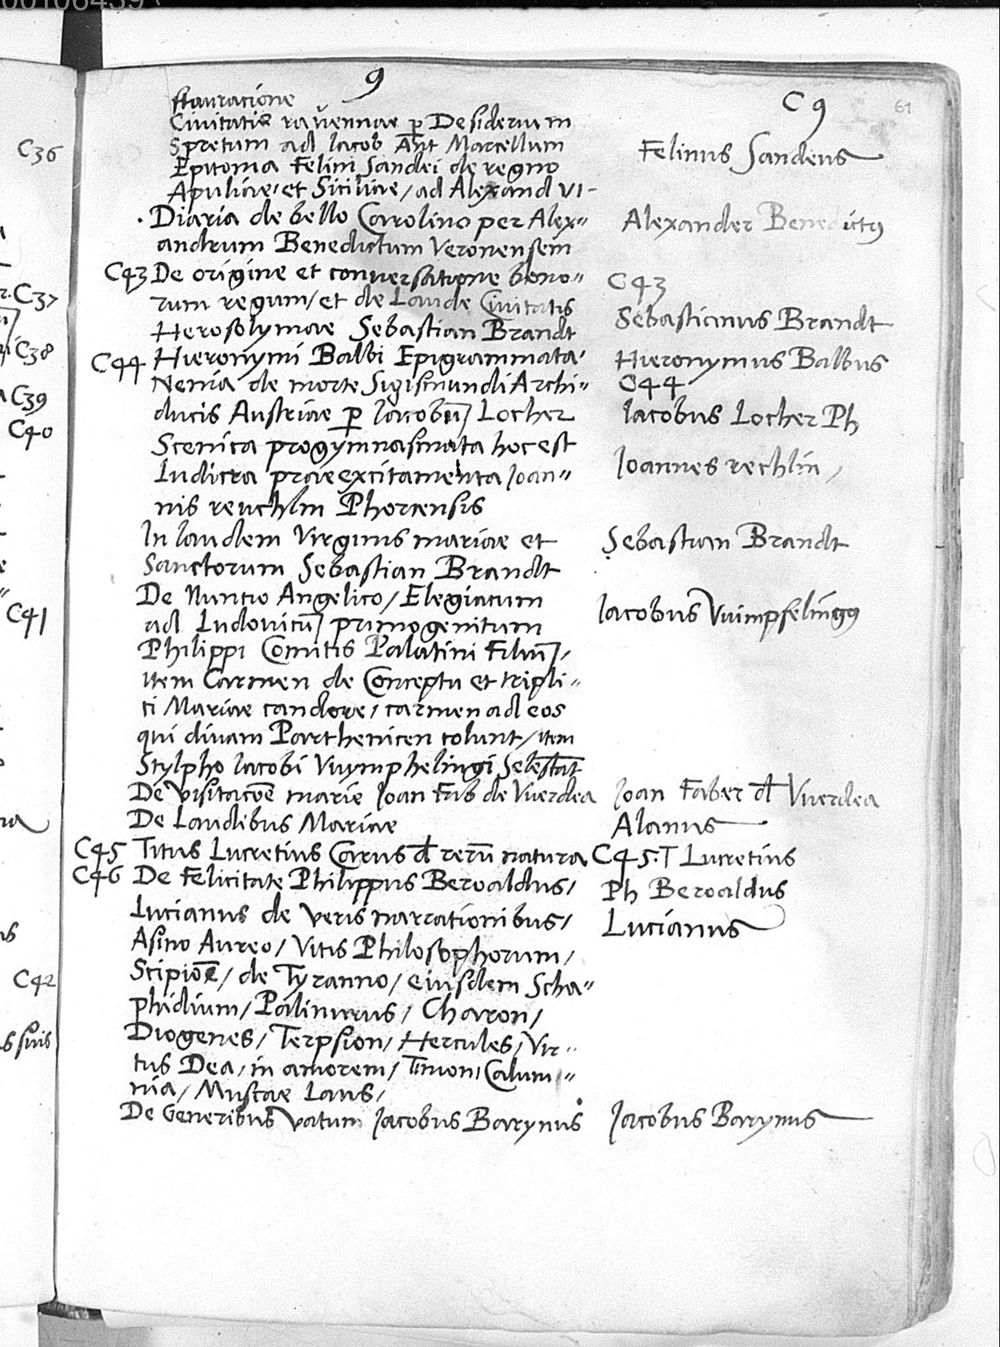 00106439
9
C 9
61
stauratione
Ciuitatis rauennae p̱ Desiderium
Spretum ad Iacob Ant Marcellum
Epitoma Felini Sandei de regno
Apuliae et Siciliae / ad Alexand VI-
Felinus Sandeus
· Diaria de bello Carolino per Alex"
andrum Benedictum Veronensem
Alexander Benedictꝰ
C43 De origine et conuersatione bono"
rum regum / et de Laude Ciuitatis
Herosolymae Sebastian Brandt
C43
Sebastianus Brandt
C44 Hieronymi Balbi Epigrammata ·
Hieronymus Balbus
Nenia de morte Sigismundi Archi"
ducis Austriae p̱ Iacobū Locher
C44
Iacobus Locher Ph
Scenica progymnasmata hoc est
ludicra praeexcitamenta Ioan"
nis reuchlin Phorcensis
Ioannes rechlin /
In laudem Virginis mariae et
Sanctorum Sebastian Brandt
Sebastian Brandt
De Nuntio Angelico / Elegiacum
ad Ludouicū primogenitum
Philippi Comitis Palatini Filiū /
item Carmen de Conceptu et tripli"
ci Mariae candore / carmen ad eos
qui diuam Parthenicen colunt / item
Stylpho Iacobi Vuymphelingi Selestat
Iacobus Vuimpfelingꝰ
De Visitacōe marie Ioan Fab de Vuerdea
Ioan Faber d Vuerdea
De Laudibus Mariae
Alanus
C45 Titus Lucretius Carus d rerū natura
C45 · T Lucretius
C46 De Felicitate Philippus Beroaldus /
Ph Beroaldus
Lucianus de veris narrationibus /
Asino Aureo / Vitis Philosophorum /
Scipiōe / de Tyranno / eiusdem Scha"
phidium / Palinurus / Charon /
Diogenes / Terpsion / Hercules / Vir"
tus Dea / in amorem / Timon / Calum"
nia / Muscae Laus /
Lucianus
De Generibus vatum Iacobus Barynus
Iacobus Barynus
C36
C37
C38
C39
C40
C41
C42